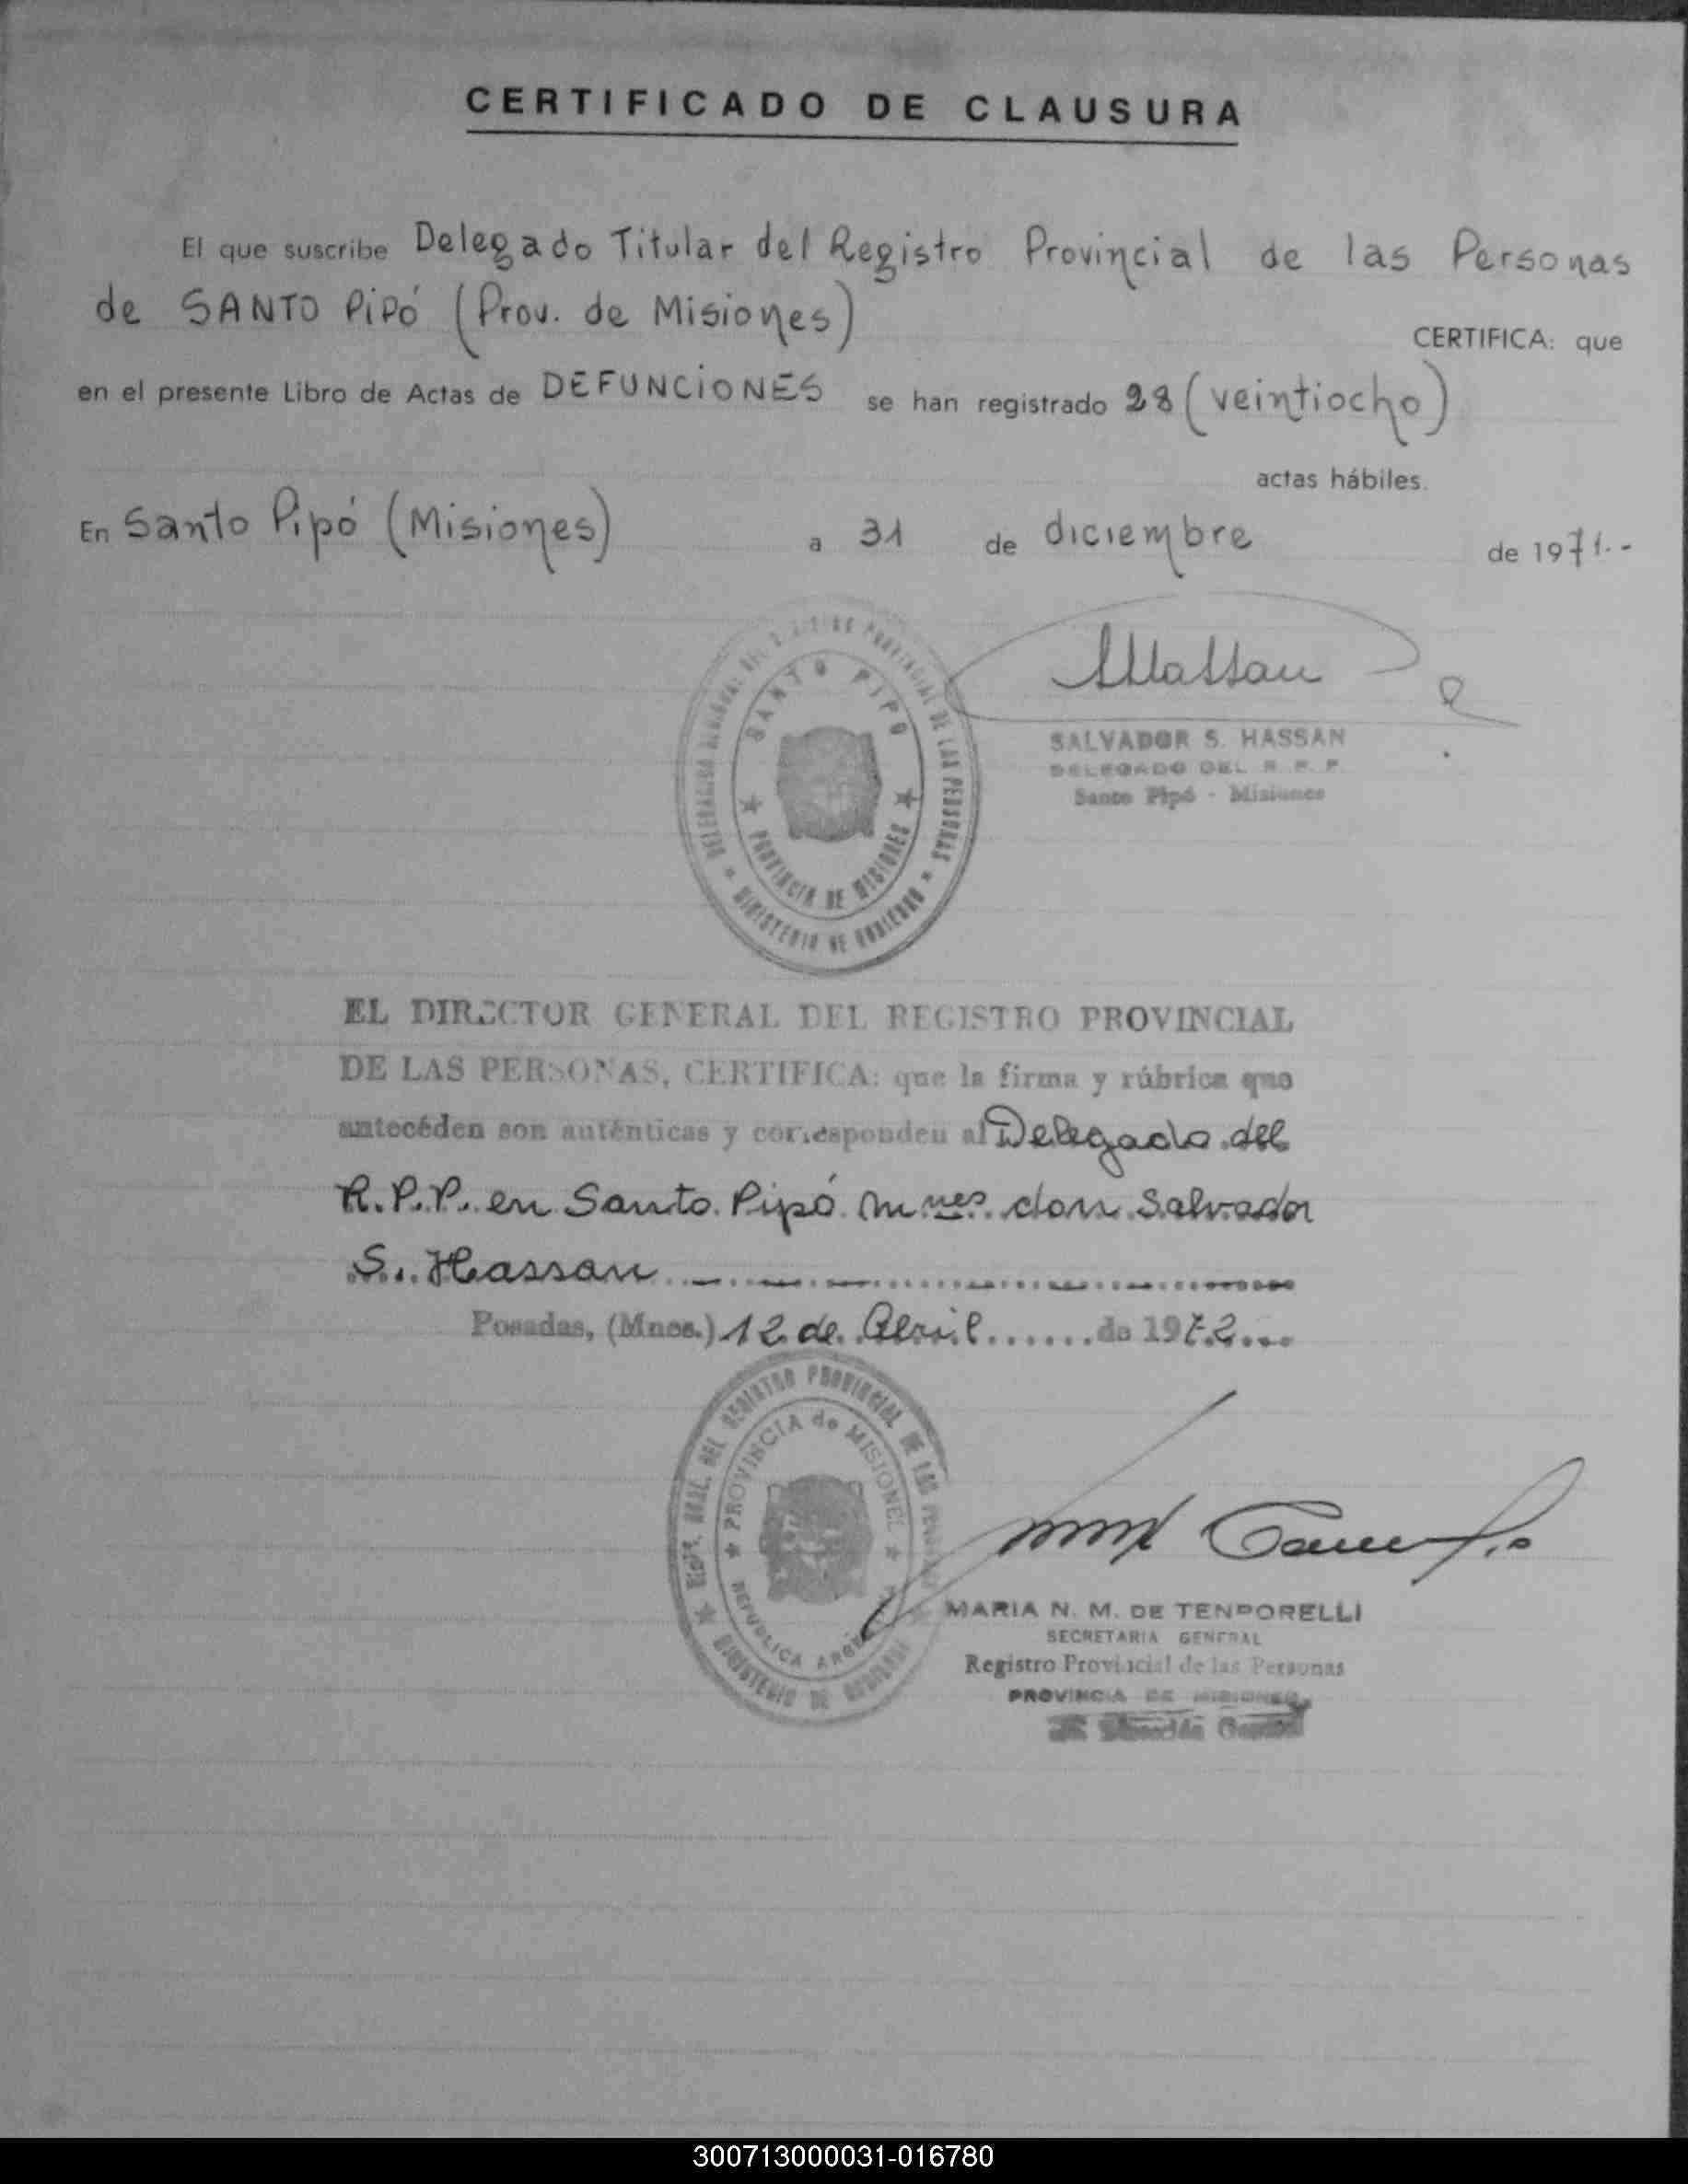 CERTIFICADO DE CLAUSURA
El que suscribe Delegado Titular del Registro Provincial de las Personas
de SANTO PIPÓ (Prov. de Misiones)
CERTIFICA: que
en el presente Libro de Actas de DEFUNCIONES se han registrado 28 (veintiocho)
actas hábiles.
En Santo Pipó (Misiones) a 31 de diciembre de 1971.-
SANTO PIPO
PROVINCIA DE MISIONES
PROVINCIAL DE LAS PERSONAS
MINISTERIO DE GOBIERNO
SALVADOR S. HASSAN
DELEGADO DEL R. P. P.
Santo Pipó - Misiones
EL DIRECTOR GENERAL DEL REGISTRO PROVINCIAL
DE LAS PERSONAS, CERTIFICA: que la firma y rúbrica que
antecéden son auténticas y corresponden al Delegado del
R.P.P. en Santo Pipó Mnes don Salvador
S. Hassan
Posadas, (Mnes.) 12 de Abril ...... de 1972...
GRAL. DEL REGISTRO PROVINCIAL DE LAS
PROVINCIA de MISIONES
REPUBLICA
MINISTERIO DE GOBIERNO
MARIA N. M. DE TENPORELLI
SECRETARIA GENERAL
Registro Provincial de las Personas
PROVINCIA DE MISIONES
300713000031-016780